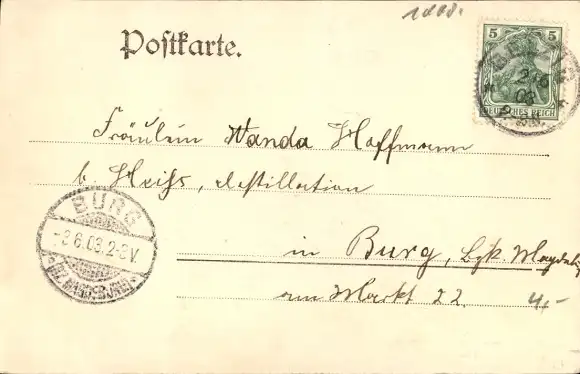 Postkarte.
5
DEUTSCHES REICH
Fräulein Wanda Hoffmann
b. Heiss, Destillation
in Burg, Bzk. Magdeburg
am Markt 22
4,-
BURG
-3.6.03. 2-3V.
(BZ. MAGDEBURG)